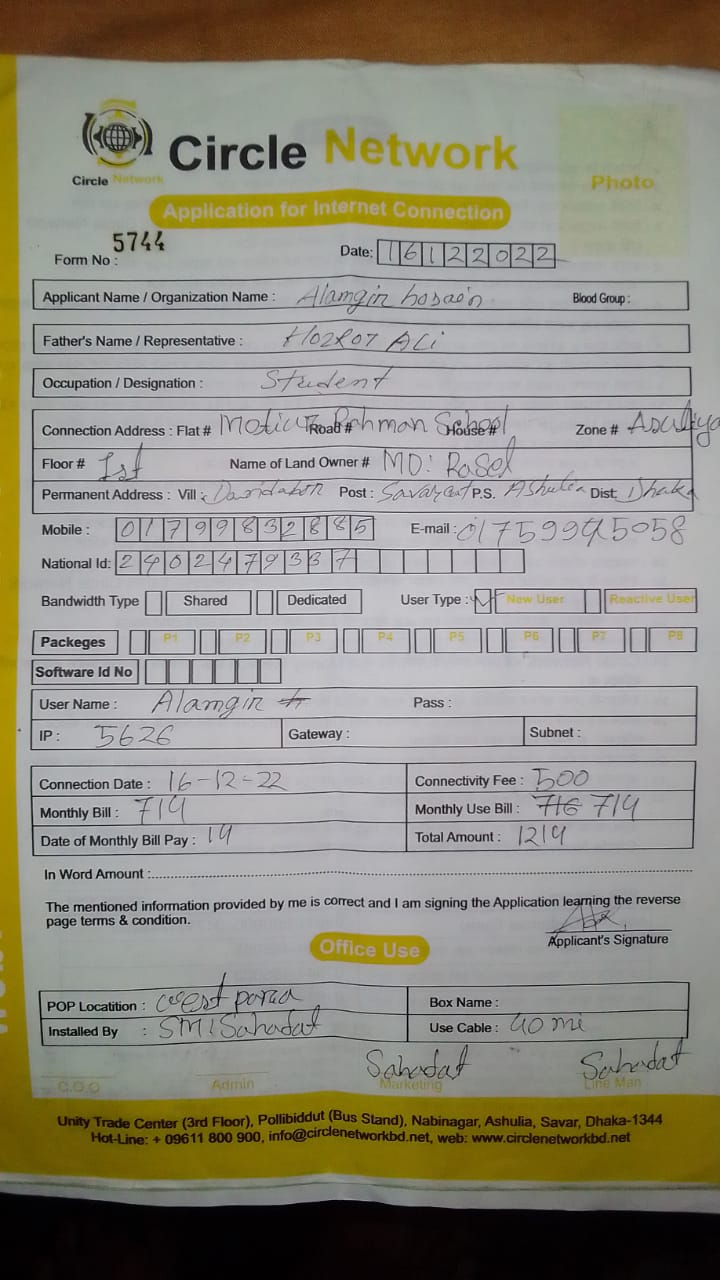 Circle Network
Circle Network
Photo
Application for Internet Connection
Form No : 5744
Date: 16122022
Applicant Name / Organization Name : Alamgir hosain Blood Group :
Father's Name / Representative : HOZROT ALi
Occupation / Designation : Student
Connection Address : Flat # Motiur Road# Rahman School House # Zone # Asuliya
Floor # 1st Name of Land Owner # MD: Rasel
Permanent Address : Vill : Post : P.S. Ashulia Dist: Dhaka
Mobile : 01799832885 E-mail :
National Id: 2402479337
Bandwidth Type Shared Dedicated User Type : New User Reactive User
Packeges P1 P2 P3 P4 P5 P6 P7 P8
Software Id No
User Name : Alamgir Pass :
IP : 5626 Gateway : Subnet :
Connection Date : 16-12-22 Connectivity Fee : 500
Monthly Bill : 714 Monthly Use Bill : 716 714
Date of Monthly Bill Pay : 14 Total Amount : 1214
In Word Amount :
The mentioned information provided by me is correct and I am signing the Application learning the reverse
page terms & condition.
Applicant's Signature
Office Use
POP Locatition : west para Box Name :
Installed By : SM: Sahadat Use Cable : 40 mi
Sahadat Sahadat
C.O.O Admin Marketing Line Man
Unity Trade Center (3rd Floor), Pollibiddut (Bus Stand), Nabinagar, Ashulia, Savar, Dhaka-1344
Hot-Line: + 09611 800 900, info@circlenetworkbd.net, web: www.circlenetworkbd.net